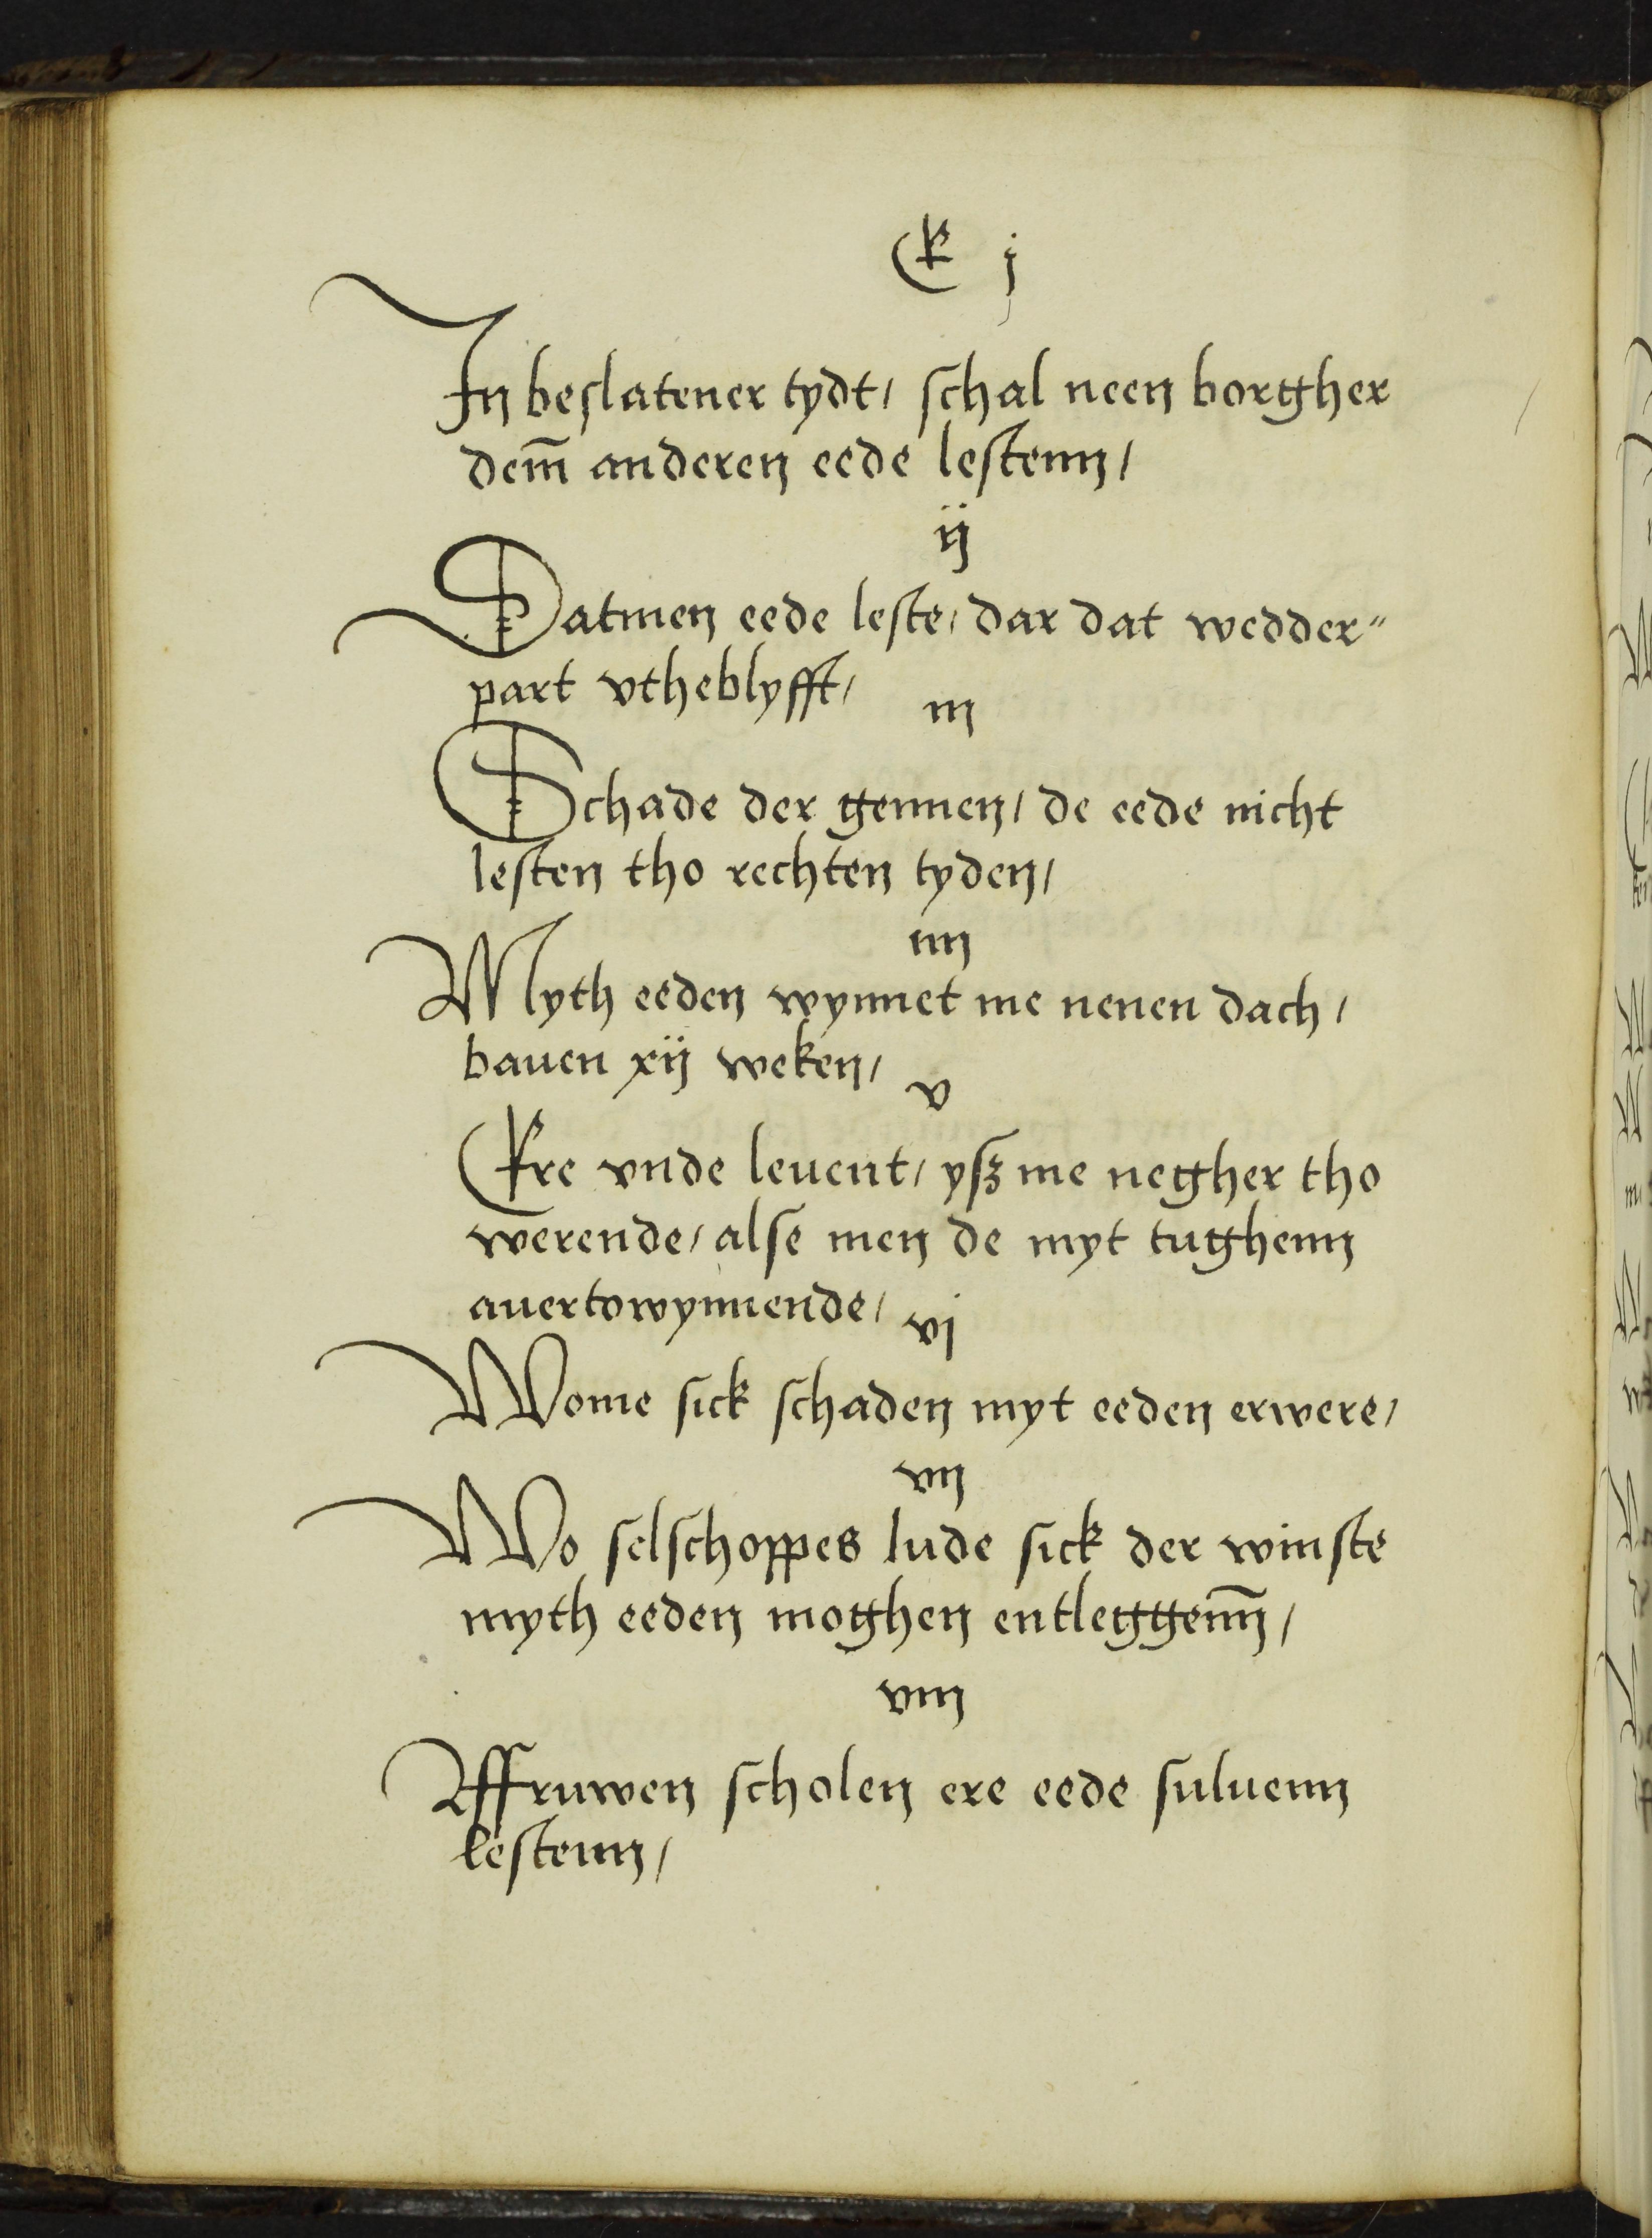 E j
In beslatener tydt / schal neen borgher
dem̄ anderen eede lestenn /
ij
Datmen eede leste / dar dat wedder"
part vtheblyfft /
iij
Schade der gennen / de eede nicht
lesten tho rechten tyden /
iiij
Myth eeden wynnet me nenen dach /
bauen xij weken /
v
Ere vnde leuent / ysz me negher tho
werende / alse men de myt tughenn
auertowynnende /
vj
Wome sick schaden myt eeden erwere /
vij
Wo selschoppes lude sick der winste
myth eeden moghen entleggenn̄ /
viij
Affruwen scholen ere eede suluenn
lestenn /